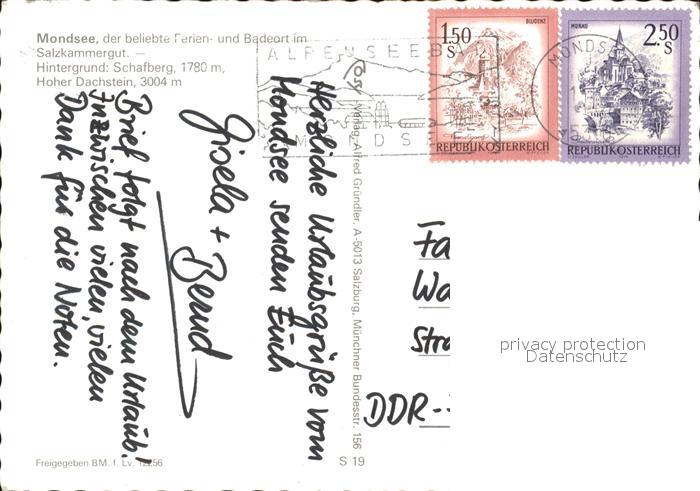 Mondsee, der beliebte Ferien- und Badeort im
Salzkammergut. —
Hintergrund: Schafberg, 1780 m,
Hoher Dachstein, 3004 m
ALPENSEEB
MONDSEE
BLUDENZ
1.50
S
REPUBLIK ÖSTERREICH
MURAU
2.50
S
REPUBLIK ÖSTERREICH
MONDS
Herzliche Urlaubsgrüße vom
Mondsee senden Euch
Gisela + Bernd
Brief folgt nach dem Urlaub!
Inzwischen vielen vielen
Dank für die Noten.
Verlag: Alfred Gründler, A-5013 Salzburg, Münchner Bundesstr. 156
Fa
Wa
Stra
DDR-
privacy protection
Datenschutz
Freigegeben BM. f. Lv.
S 19